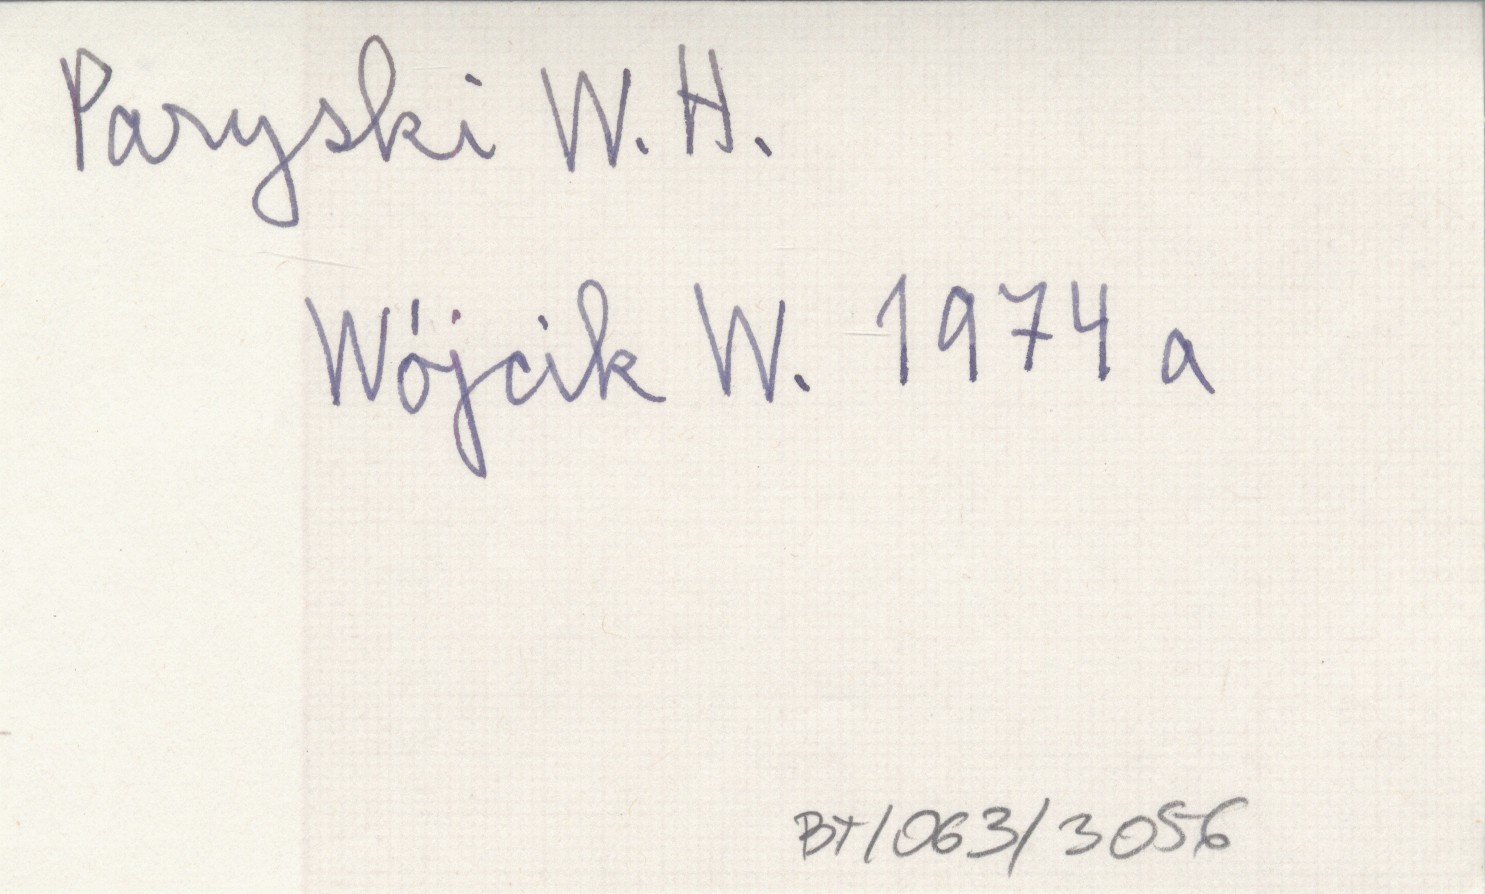 Paryski W. H.
Wójcik W. 1974 a
BT/063/3056